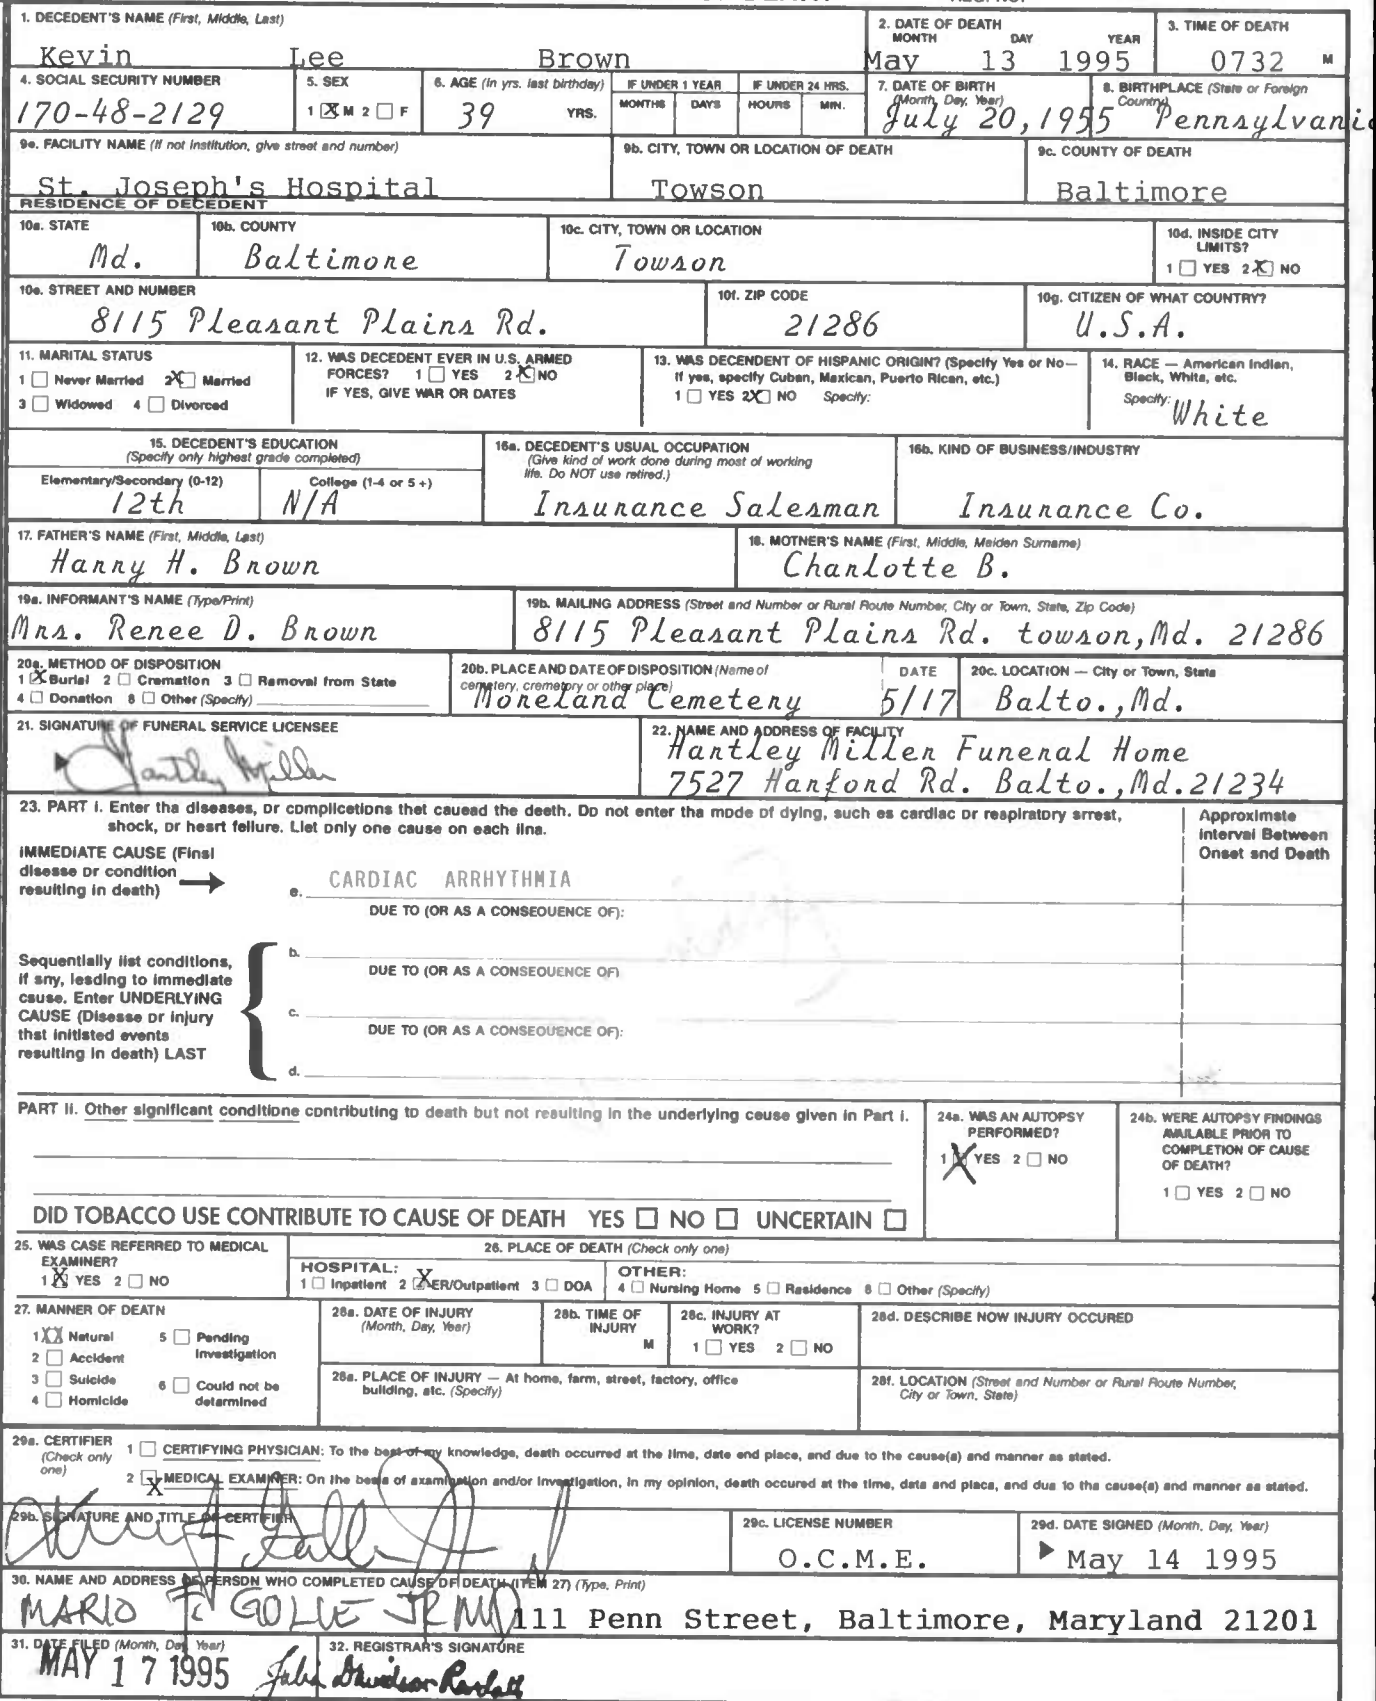 1. DECEDENT'S NAME (First, Middle, Last)
Kevin Lee Brown
2. DATE OF DEATH
MONTH DAY YEAR
May 13 1995
3. TIME OF DEATH
0732 M
4. SOCIAL SECURITY NUMBER
170-48-2129
5. SEX
1 X M 2 F
6. AGE (In yrs. last birthday)
39 YRS.
IF UNDER 1 YEAR
MONTHS DAYS
IF UNDER 24 HRS.
HOURS MIN.
7. DATE OF BIRTH
(Month, Day, Year)
July 20, 1955
8. BIRTHPLACE (State or Foreign
Country)
Pennsylvania
9e. FACILITY NAME (If not institution, give street and number)
St. Joseph's Hospital
9b. CITY, TOWN OR LOCATION OF DEATH
Towson
9c. COUNTY OF DEATH
Baltimore
RESIDENCE OF DECEDENT
10a. STATE
Md.
10b. COUNTY
Baltimore
10c. CITY, TOWN OR LOCATION
Towson
10d. INSIDE CITY
LIMITS?
1 YES 2 X NO
10e. STREET AND NUMBER
8115 Pleasant Plains Rd.
10f. ZIP CODE
21286
10g. CITIZEN OF WHAT COUNTRY?
U.S.A.
11. MARITAL STATUS
1 Never Married 2 X Married
3 Widowed 4 Divorced
12. WAS DECEDENT EVER IN U.S. ARMED
FORCES? 1 YES 2 X NO
IF YES, GIVE WAR OR DATES
13. WAS DECENDENT OF HISPANIC ORIGIN? (Specify Yes or No—
If yes, specify Cuban, Mexican, Puerto Rican, etc.)
1 YES 2 X NO Specify:
14. RACE — American Indian,
Black, White, etc.
Specify: White
15. DECEDENT'S EDUCATION
(Specify only highest grade completed)
Elementary/Secondary (0-12)
12th
College (1-4 or 5+)
N/A
16a. DECEDENT'S USUAL OCCUPATION
(Give kind of work done during most of working
life. Do NOT use retired.)
Insurance Salesman
16b. KIND OF BUSINESS/INDUSTRY
Insurance Co.
17. FATHER'S NAME (First, Middle, Last)
Harry H. Brown
18. MOTNER'S NAME (First, Middle, Maiden Surname)
Charlotte B.
19a. INFORMANT'S NAME (Type/Print)
Mrs. Renee D. Brown
19b. MAILING ADDRESS (Street and Number or Rural Route Number, City or Town, State, Zip Code)
8115 Pleasant Plains Rd. towson, Md. 21286
20a. METHOD OF DISPOSITION
1 X Burial 2 Cremation 3 Removal from State
4 Donation 8 Other (Specify)
20b. PLACE AND DATE OF DISPOSITION (Name of
cemetery, crematory or other place)
Moreland Cemetery
DATE
5/17
20c. LOCATION — City or Town, State
Balto., Md.
21. SIGNATURE OF FUNERAL SERVICE LICENSEE
Hartley Miller
22. NAME AND ADDRESS OF FACILITY
Hartley Miller Funeral Home
7527 Harford Rd. Balto., Md. 21234
23. PART I. Enter tha diseases, or complicetions thet cauead the death. Do not enter tha mode of dying, such es cardiac or respiratory srrest,
shock, or hesrt fellure. Liet only one cause on each lina.
Approximste
Interval Between
Onset snd Death
IMMEDIATE CAUSE (Finsl
disesse or condition
resulting in death)
e. CARDIAC ARRHYTHMIA
DUE TO (OR AS A CONSEQUENCE OF):
Sequentially list conditions,
if sny, lesding to immediate
csuse. Enter UNDERLYING
CAUSE (Disesse or injury
thst initisted events
resulting in death) LAST
b.
DUE TO (OR AS A CONSEQUENCE OF)
c.
DUE TO (OR AS A CONSEQUENCE OF):
d.
PART II. Other significant conditione contributing to death but not resulting in the underlying ceuse given in Part I.
24a. WAS AN AUTOPSY
PERFORMED?
1 X YES 2 NO
24b. WERE AUTOPSY FINDINGS
AVAILABLE PRIOR TO
COMPLETION OF CAUSE
OF DEATH?
1 YES 2 NO
DID TOBACCO USE CONTRIBUTE TO CAUSE OF DEATH YES NO UNCERTAIN
25. WAS CASE REFERRED TO MEDICAL
EXAMINER?
1 X YES 2 NO
26. PLACE OF DEATH (Check only one)
HOSPITAL:
1 Inpatient 2 X ER/Outpatient 3 DOA
OTHER:
4 Nursing Home 5 Residence 8 Other (Specify)
27. MANNER OF DEATH
1 XX Natural 5 Pending
2 Accident Investigation
3 Suicide 6 Could not be
4 Homicide determined
28a. DATE OF INJURY
(Month, Day, Year)
28b. TIME OF
INJURY
M
28c. INJURY AT
WORK?
1 YES 2 NO
28d. DESCRIBE NOW INJURY OCCURED
28a. PLACE OF INJURY — At home, farm, street, factory, office
building, atc. (Specify)
28f. LOCATION (Street and Number or Rural Route Number,
City or Town, State)
29a. CERTIFIER
(Check only
one)
1 CERTIFYING PHYSICIAN: To the best of my knowledge, death occurred at the time, date end place, and due to the cause(a) and manner as stated.
2 X MEDICAL EXAMINER: On the besis of examination and/or investigation, in my opinion, death occured at the time, data and placa, and due to the cause(a) and manner as stated.
29b. SIGNATURE AND TITLE OF CERTIFIER
29c. LICENSE NUMBER
O.C.M.E.
29d. DATE SIGNED (Month, Day, Year)
May 14 1995
30. NAME AND ADDRESS OF PERSON WHO COMPLETED CAUSE OF DEATH (ITEM 27) (Type, Print)
MARIO F. GOLLE JR MD 111 Penn Street, Baltimore, Maryland 21201
31. DATE FILED (Month, Day, Year)
MAY 17 1995
32. REGISTRAR'S SIGNATURE